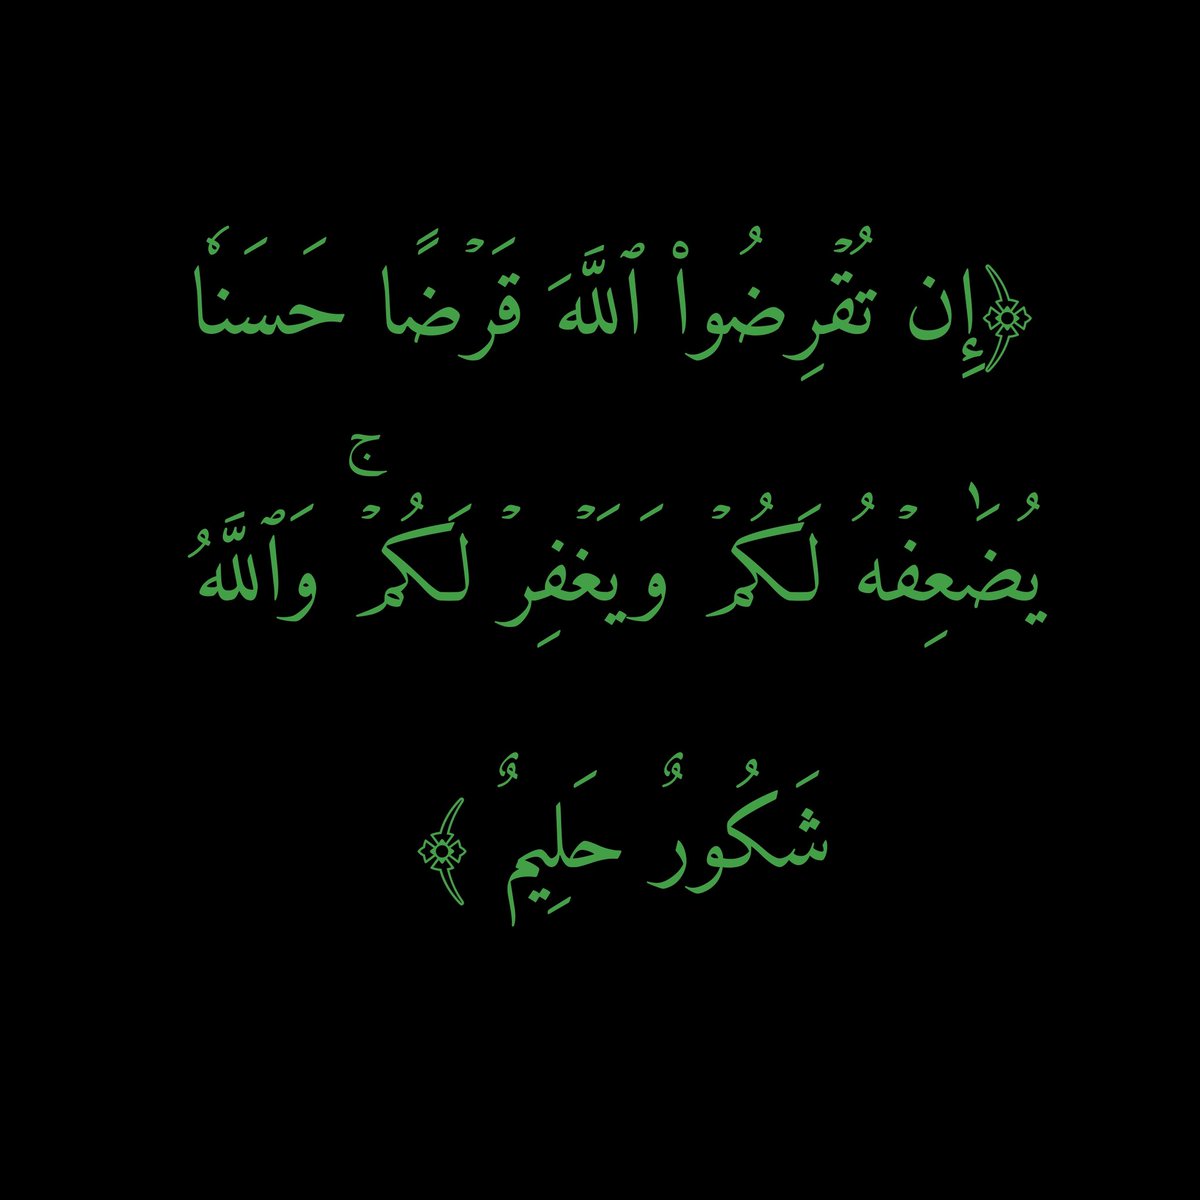 ﴿إِن تُقۡرِضُواْ ٱللَّهَ قَرۡضًا حَسَنٗا
يُضَٰعِفۡهُ لَكُمۡ وَيَغۡفِرۡ لَكُمۡۚ وَٱللَّهُ
شَكُورٌ حَلِيمٌ ﴾